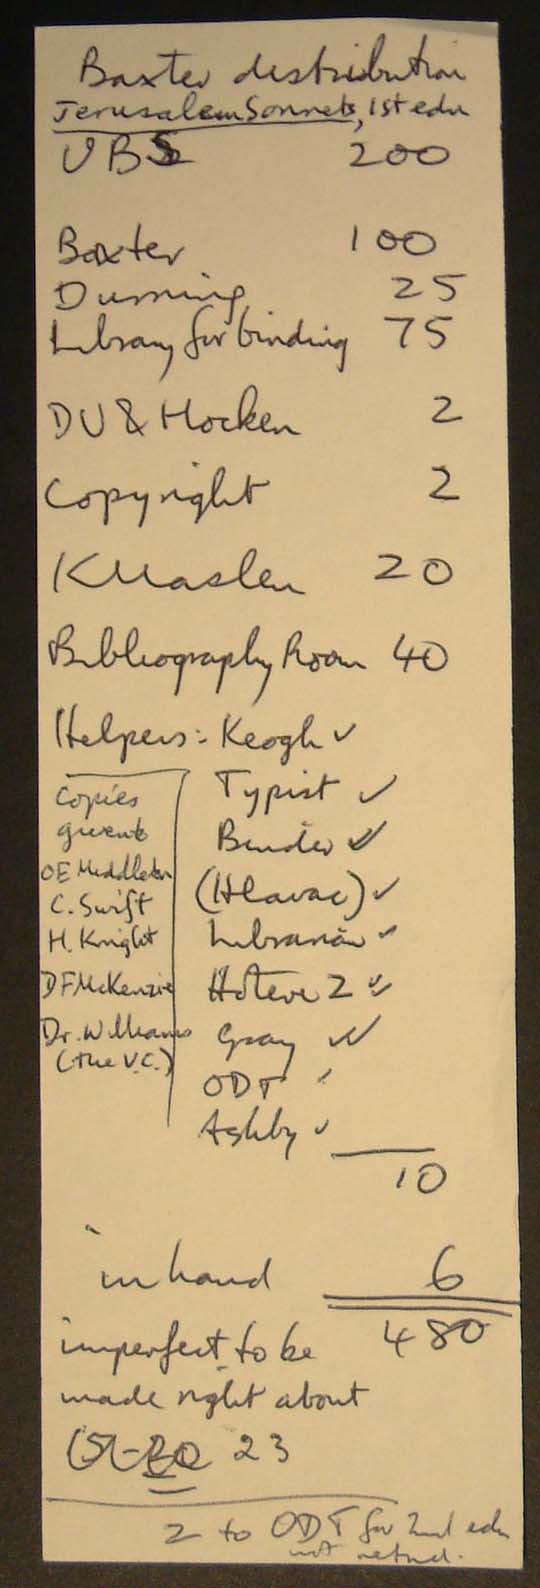 Baxter distribution
Jerusalem Sonnets, 1st edn
UBS 200
Baxter 100
Dunning 25
Library for binding 75
DU & Hocken 2
Copyright 2
K Maslen 20
Bibliography Room 40
Helpers: Keogh ✓
Typist ✓
Binder ✓✓
(Hlavac) ✓
Librarian ✓
Hotere 2 ✓✓
Gray ✓✓
ODT ✓
Ashby ✓
10
Copies
given to
OE Middleton
C. Swift
H. Knight
DF McKenzie
Dr. Williams
(the V.C.)
in hand 6
480
imperfect to be
made right about
15-20 23
2 to ODT for 2nd edn
not retnd.